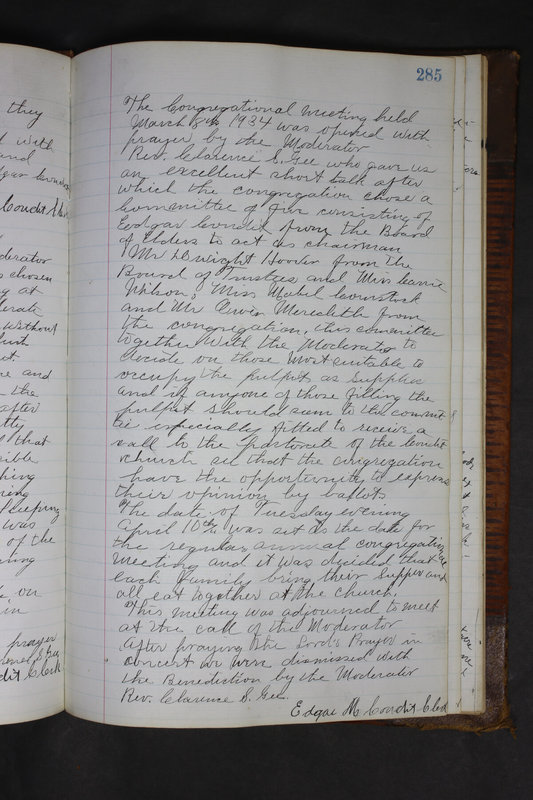 285
The Congregational meeting held
March 8th 1934 was opened with
prayer by the Moderator
Rev. Clarence S. Gee who gave us
an excellent short talk after
which the congregation chose a
Committee of five consisting of
Eedgar Condit from the Board
of Elders to act as chairman
Mr Dwight Hoover from the
Board of Trustees and Miss Carrie
Wilson, Miss Mabel Comstock
and Mr Erwin Meredeth from
the congregation, this committee
together with the Moderator to
decide on those most suitable to
occupy the pulpit as supplies
and if anyone of those filling the
pulpit should seem to the commit
be especially fitted to receive a
call to the Pastorate of the Condit
church see that the congregation
have the opportunity to express
their opinion by ballots
The date of Tuesday evening
April 10th was set as the date for
the regular annual congregational
meeting and it was decided that
each family bring their supper and
all eat together at the church.
This meeting was adjourned to meet
at the call of the Moderator
After praying the Lords Prayer in
concert we were dismissed with
the Benediction by the Moderator
Rev. Clarence S. Gee.
Edgar M Condit Clerk
they
with
and
Condit Clerk
oderator
chosen
at
without
and
the
after
that
sible
sleeping
was
of the
on
in
prayer